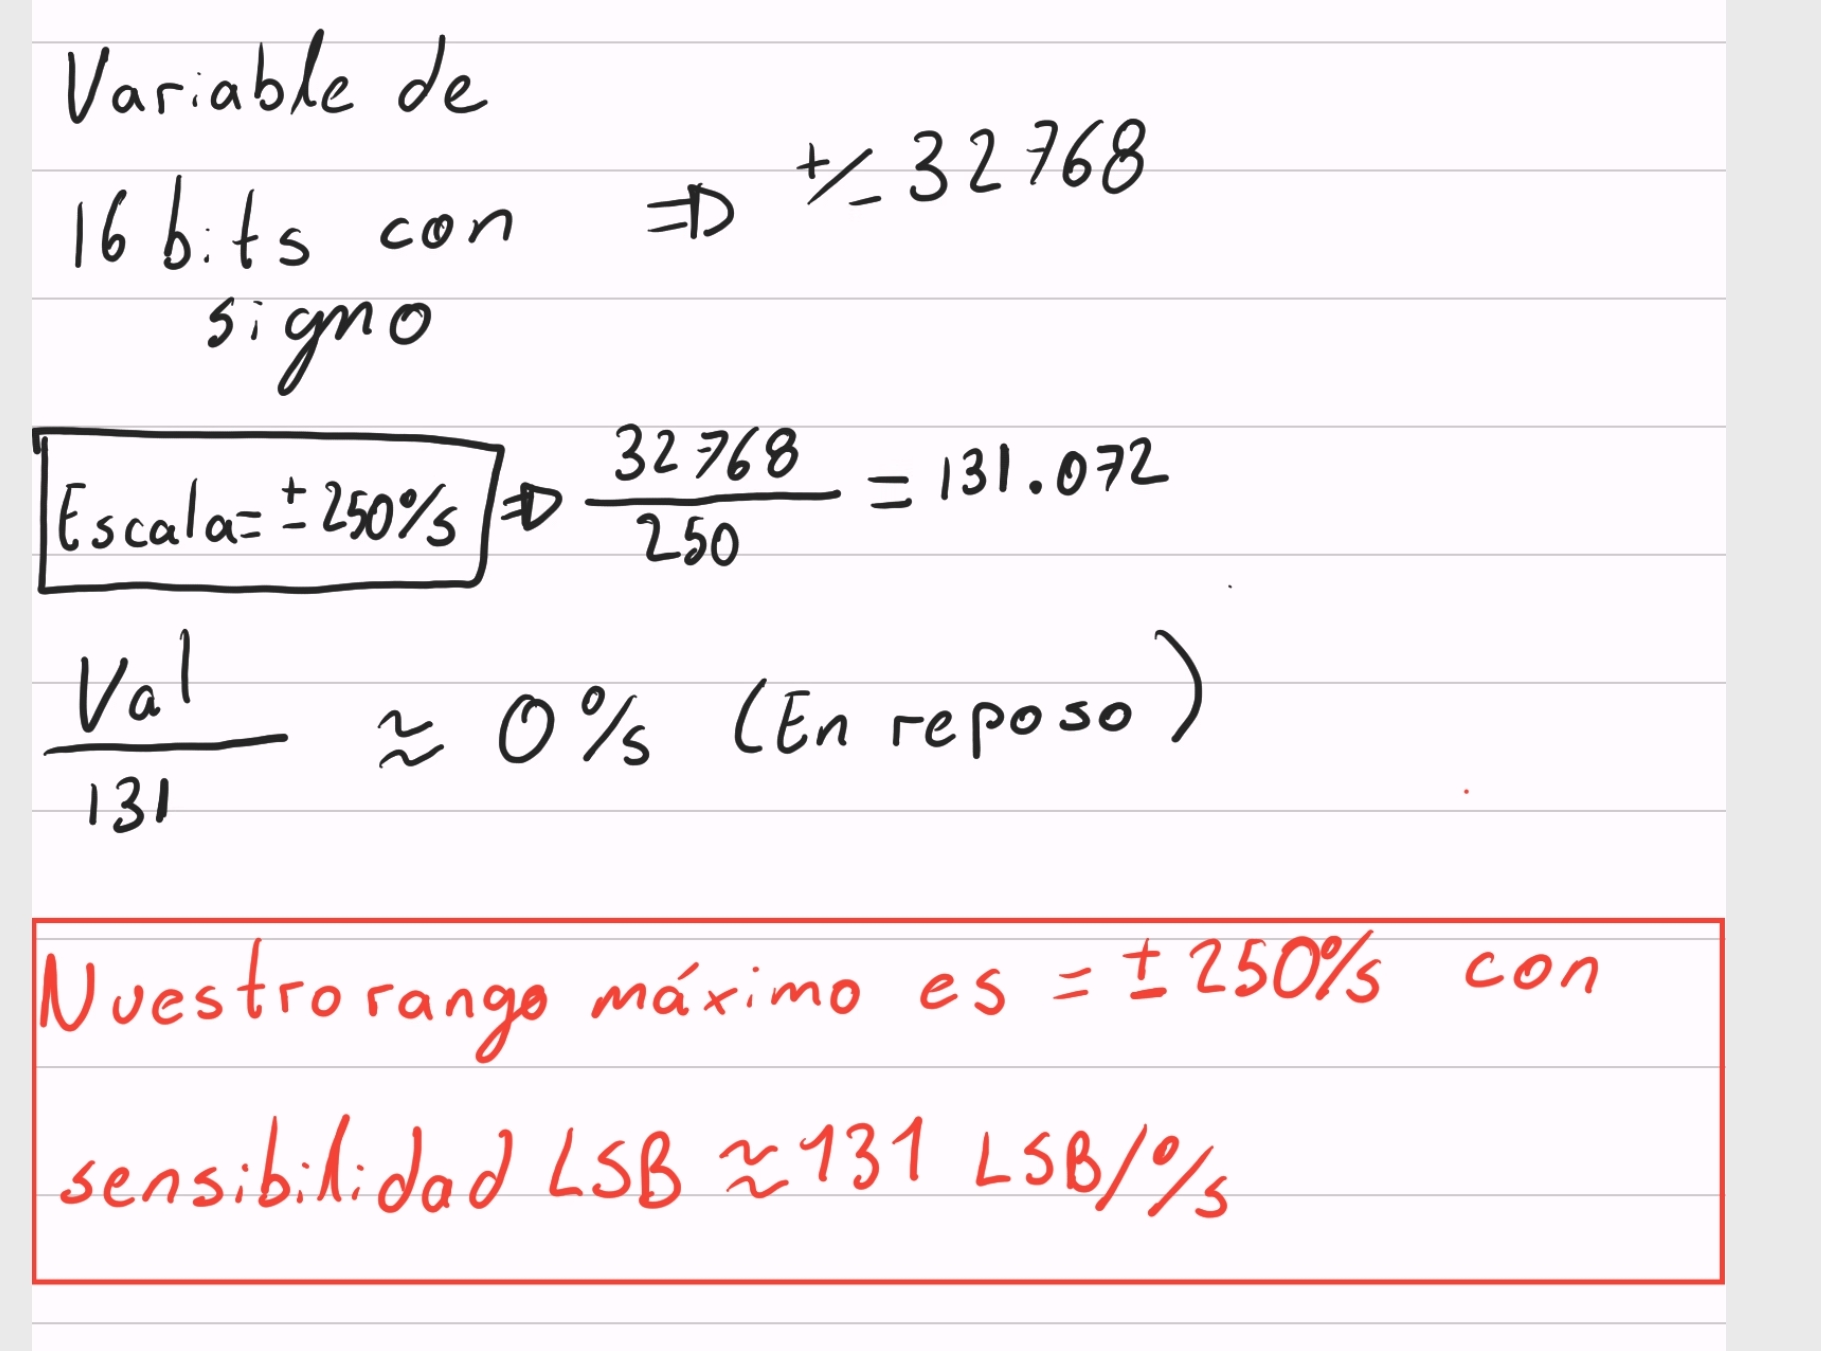 Variable de
16 bits con ⇒ +/- 32768
signo
Escala= ±250°/s ⇒ 32768/250 = 131.072
Val/131 ≈ 0°/s (En reposo)
Nuestro rango máximo es = ±250°/s con
sensibilidad LSB ≈ 131 LSB/°/s